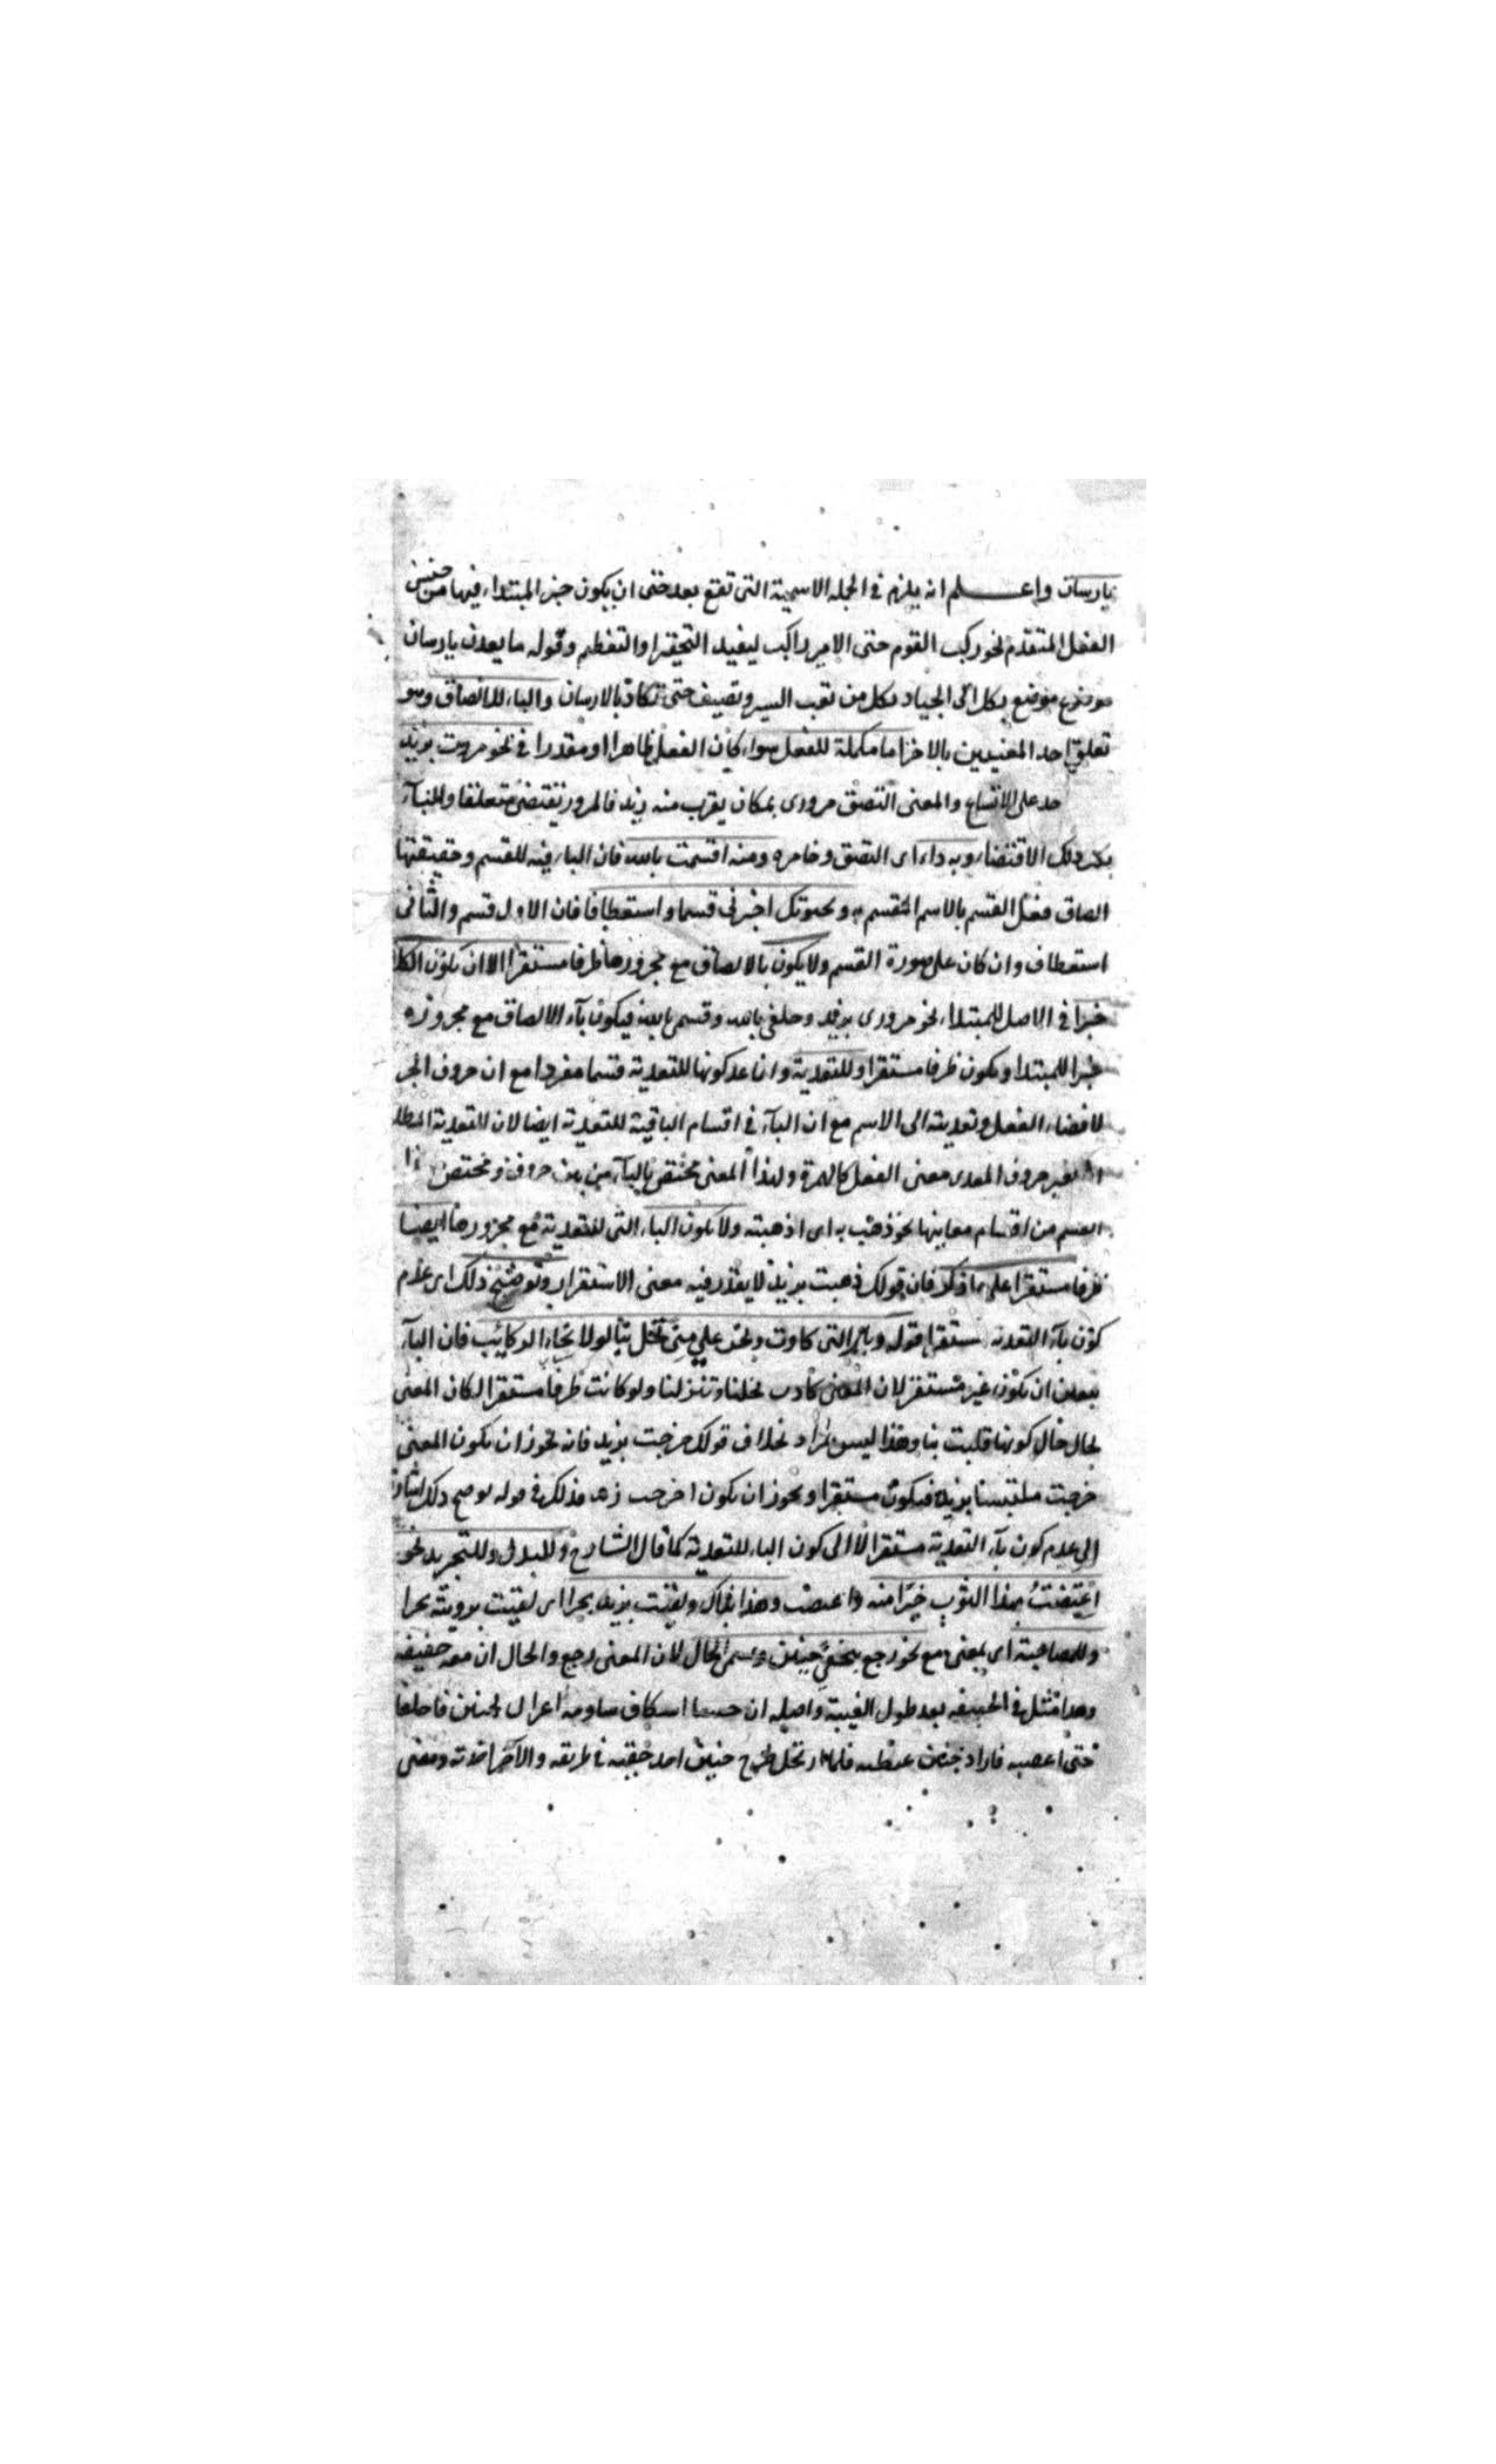 بارسان واعلم انه يلزم في الجملة الاسمية التى تقع بعد حتى ان يكون خبر المبتداء فيها من جنس
الفعل المتقدم نحو ركب القوم حتى الامير راكب ليفيد التحقير او التعظيم وقوله ما يعدن بارسان
موضوع موضع يكل اى الجياد يكل من تعب السير وتضيف حتى تكاد بالارسان والباء للالصاق وهو
تعلق احد المعنيين بالاخر اما مكملة للفعل سواء كان الفعل ظاهرا او مقدرا في نحو مررت بزيد
على الاتساع والمعنى التصق مرورى بمكان يقرب منه زيد فالمرور يقتضى متعلقا والباء
ذلك الاقتضاء وبه داء اى التصق وخامره ومنه اقسمت بالله فان الباء فيه للقسم وحقيقتها
الصاق فعل القسم بالاسم المقسم به وبحيوتك اخبرنى قسما واستعطافا فان الاول قسم والثانى
استعطاف وان كان على صورة القسم ولا يكون بالالصاق مع مجرورها ظرفا مستقرا الا ان يكون
خبرا في الاصل للمبتداء نحو مرورى بزيد وحلفى بالله وقسمى بالله فيكون باء الالصاق مع مجروره
خبرا للمبتدا ويكون ظرفا مستقرا وللتعدية وانما عد كونها للتعدية قسما مفردا مع ان حروف الجر
لافضاء الفعل وتعديته الى الاسم مع ان الباء في اقسام الباقية للتعدية ايضا لان التعدية
حروف المعدى معنى الفعل كالهمزة وهذا المعنى مختص بالباء من بين حروف
القسم من اقسام معانيها نحو ذهبت به اى اذهبته ولا تكون الباء التى للتعدية مع مجرورها ايضا
ظرفا مستقرا على ما ذكر فان قولك ذهبت بزيد لا يقدر فيه معنى الاستقرار وتوضيح ذلك اى عدم
كون باء التعدية مستقرا قوله التى كادت لولا نجاء الركائب فان الباء
ان تكون غير مستقر لان المعنى كادت ولو كانت ظرفا مستقرا لكان المعنى
حال كونها بنا وهذا ليس بمراد بخلاف قولك خرجت بزيد فانه يجوز ان يكون المعنى
خرجت ملتبسا بزيد فيكون مستقرا ويجوز ان يكون اخرجت فذلك في قوله يوضح ذلك
الى عدم كون باء التعدية مستقرا لا الى كون الباء للتعدية كما قال الشارح وللبدل وللتجريد نحو
اعتضت بهذا الثوب خيرا منه وهذا بذاك ولقيت بزيد بحرا اى لقيت برويته بحرا
وللمصاحبة اى بمعنى مع نحو رجع بخفى حنين ويسمى الحال لان المعنى رجع والحال ان معه خفيه
وهذا مثل في الخيبة بعد طول الغيبة واصله ان حنينا اسكاف ساومه اعرابى فاختلفا
حتى اغضبه فاراد حنين غيظه فلما ارتحل طرح حنين احد خفيه في طريقه والاخر ومضى